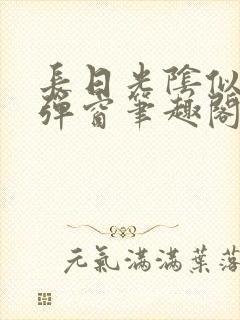 長日光陰似
彈窗筆趣閣
元氣滿滿葉落